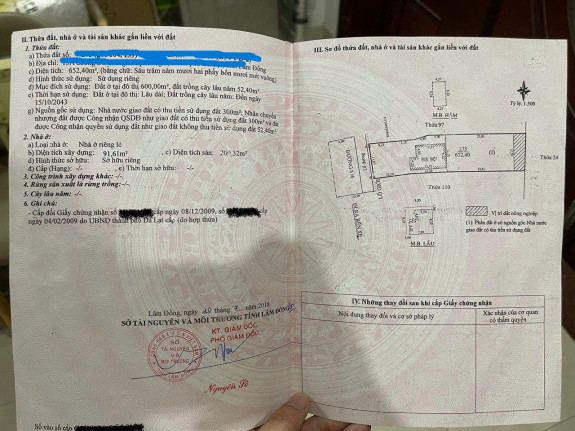 II. Thửa đất, nhà ở và tài sản khác gắn liền với đất
1. Thửa đất:
a) Thửa đất số:
b) Địa chỉ:
Lâm Đồng
c) Diện tích: 652,40m², (bằng chữ: Sáu trăm năm mươi hai phẩy bốn mươi mét vuông)
d) Hình thức sử dụng: Sử dụng riêng
đ) Mục đích sử dụng: Đất ở tại đô thị 600,00m², đất trồng cây lâu năm 52,40m²
e) Thời hạn sử dụng: Đất ở tại đô thị: Lâu dài; Đất trồng cây lâu năm: Đến ngày
15/10/2043
g) Nguồn gốc sử dụng: Nhà nước giao đất có thu tiền sử dụng đất 300m²; Nhận chuyển
nhượng đất được Công nhận QSDĐ như giao đất có thu tiền sử dụng đất 300m² và đất
được Công nhận quyền sử dụng đất như giao đất không thu tiền sử dụng đất 52,40m²
2. Nhà ở:
a) Loại nhà ở: Nhà ở riêng lẻ
b) Diện tích xây dựng: 91,61m², c) Diện tích sàn: 200,32m²
d) Hình thức sở hữu: Sở hữu riêng
đ) Cấp (Hạng): -/- , e) Thời hạn sở hữu: -/-
3. Công trình xây dựng khác: -/-
4. Rừng sản xuất là rừng trồng:-/-
5. Cây lâu năm: -/-
6. Ghi chú:
- Cấp đổi Giấy chứng nhận số cấp ngày 08/12/2009, số cấp
ngày 04/02/2009 do UBND thành phố Đà Lạt cấp (do hợp thửa)
Lâm Đồng, ngày 20 tháng 7 năm 2018
SỞ TÀI NGUYÊN VÀ MÔI TRƯỜNG TỈNH LÂM ĐỒNG
KT. GIÁM ĐỐC
PHÓ GIÁM ĐỐC
SỞ
TÀI NGUYÊN
VÀ
MÔI TRƯỜNG
Số vào sổ cấp
III. Sơ đồ thửa đất, nhà ở và tài sản khác gắn liền với đất
M.B. HẦM
Tỷ lệ 1:500
Thửa 97
652,40
(1)
Thửa 24
Thửa 110
M.B. LẦU
Vị trí đất nông nghiệp
(1): Phần đất ở có nguồn gốc Nhà nước
giao đất có thu tiền sử dụng đất
IV. Những thay đổi sau khi cấp Giấy chứng nhận
Nội dung thay đổi và cơ sở pháp lý
Xác nhận của cơ quan
có thẩm quyền